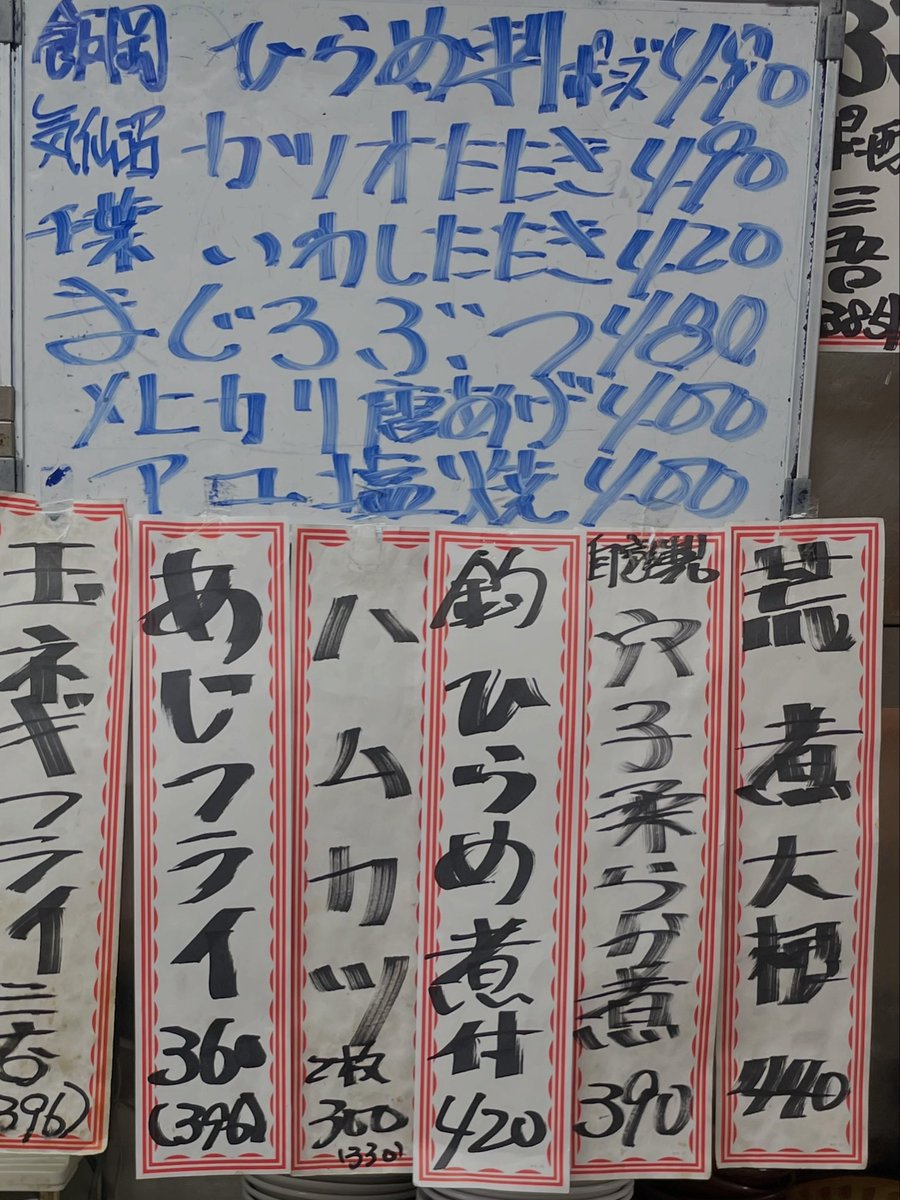 飯岡 ひらめ刺ポン酢 490
気仙沼 カツオたたき 490
千葉 いわしたたき 420
まぐろぶつ 480
メヒカリ唐あげ 400
アユ塩焼 400
荒煮大根 440
自家製 穴子柔らか煮 390
釣ひらめ煮付 420
ハムカツ 2枚 300 (330)
あじフライ 360 (396)
玉ネギフライ 三百 (396)
三百
385